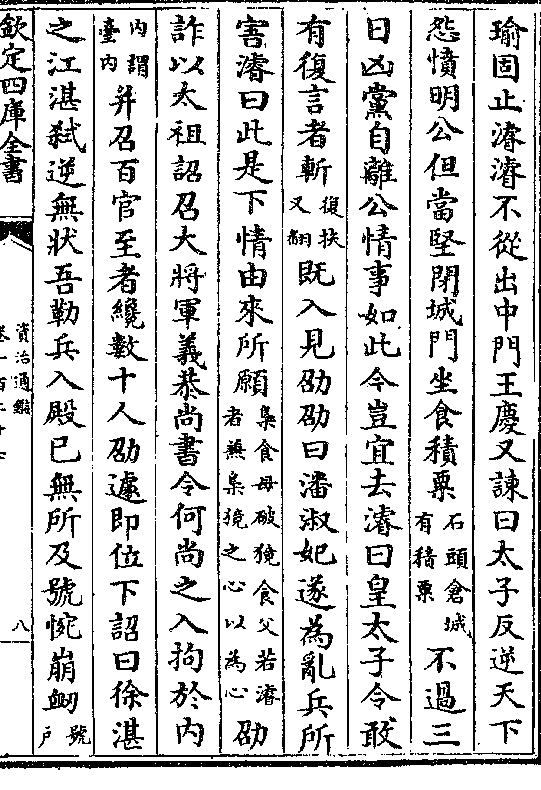 瑜固止濬濬不從出中門王慶又諫曰太子反逆天下
怨憤明公但當堅閉城門坐食積粟石頭倉城有積粟不過三
日凶黨自離公情事如此今豈宜去濬曰皇太子令敢
有復言者斬復扶又翻既入見劭劭曰潘淑妃遂為亂兵所
害濬曰此是下情由來所願梟食母破獍食父若濬者兼梟獍之心以為心劭
詐以太祖詔召大將軍義恭尚書令何尚之入拘於内
内謂臺内并召百官至者纔數十人劭遽即位下詔曰徐湛
之江湛弒逆無狀吾勒兵入殿已無所及號惋崩衂號戶
欽定四庫全書
資治通鑑
卷一百二十七
八